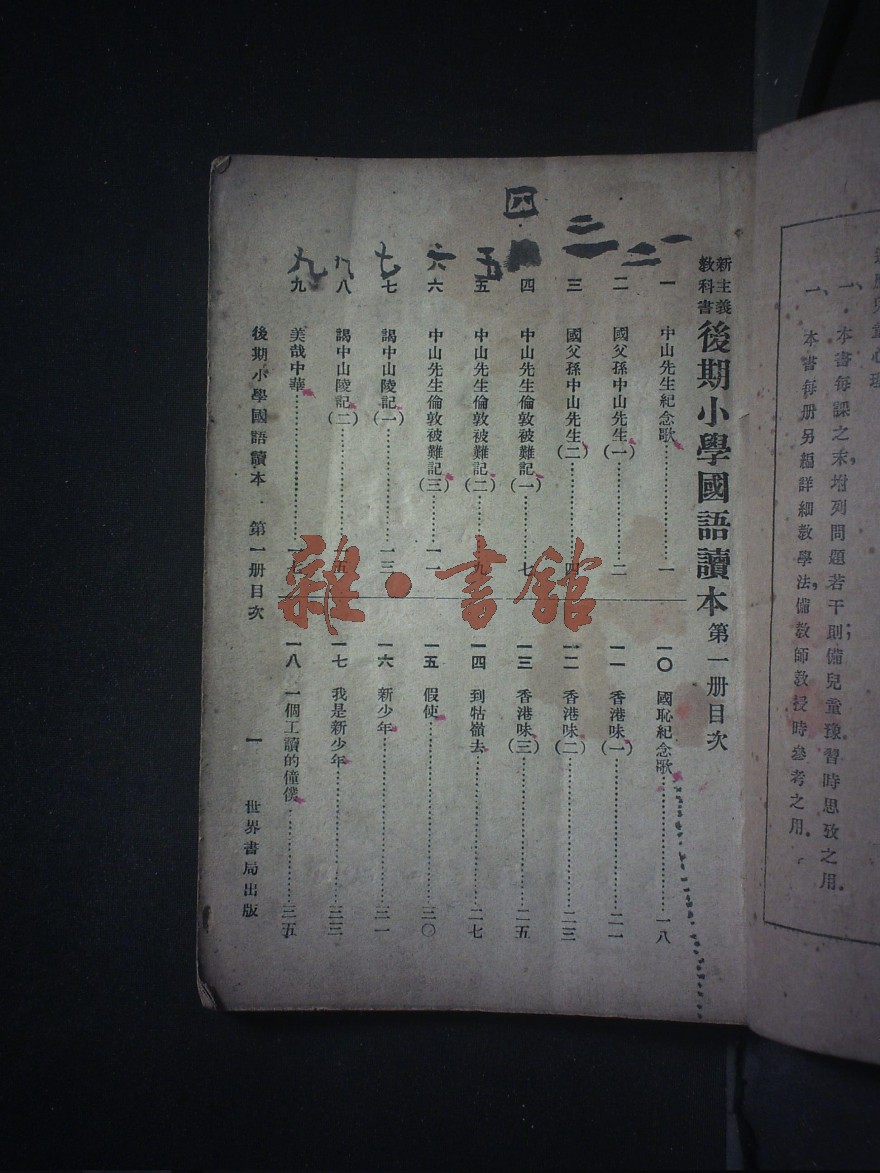 一、本書每課之末，坿列問題若干則；備兒童豫習時思攷之用。
一、本書每册另編詳細教學法，備教師教授時參考之用。
新主義教科書 後期小學國語讀本 第一册目次
一 中山先生紀念歌……一
二 國父孫中山先生(一)……二
三 國父孫中山先生(二)……四
四 中山先生倫敦被難記(一)……七
五 中山先生倫敦被難記(二)……九
六 中山先生倫敦被難記(三)……一一
七 謁中山陵記(一)……一三
八 謁中山陵記(二)……五
九 美哉中華……一七
一〇 國恥紀念歌……一八
一一 香港味(一)……二一
一二 香港味(二)……二三
一三 香港味(三)……二五
一四 到牯嶺去……二七
一五 假使……三〇
一六 新少年……三一
一七 我是新少年……三三
一八 一個工讀的僮僕……三五
後期小學國語讀本 第一册目次
一
世界書局出版
一
二
三
四
五
六
七
八
九
雜·書館